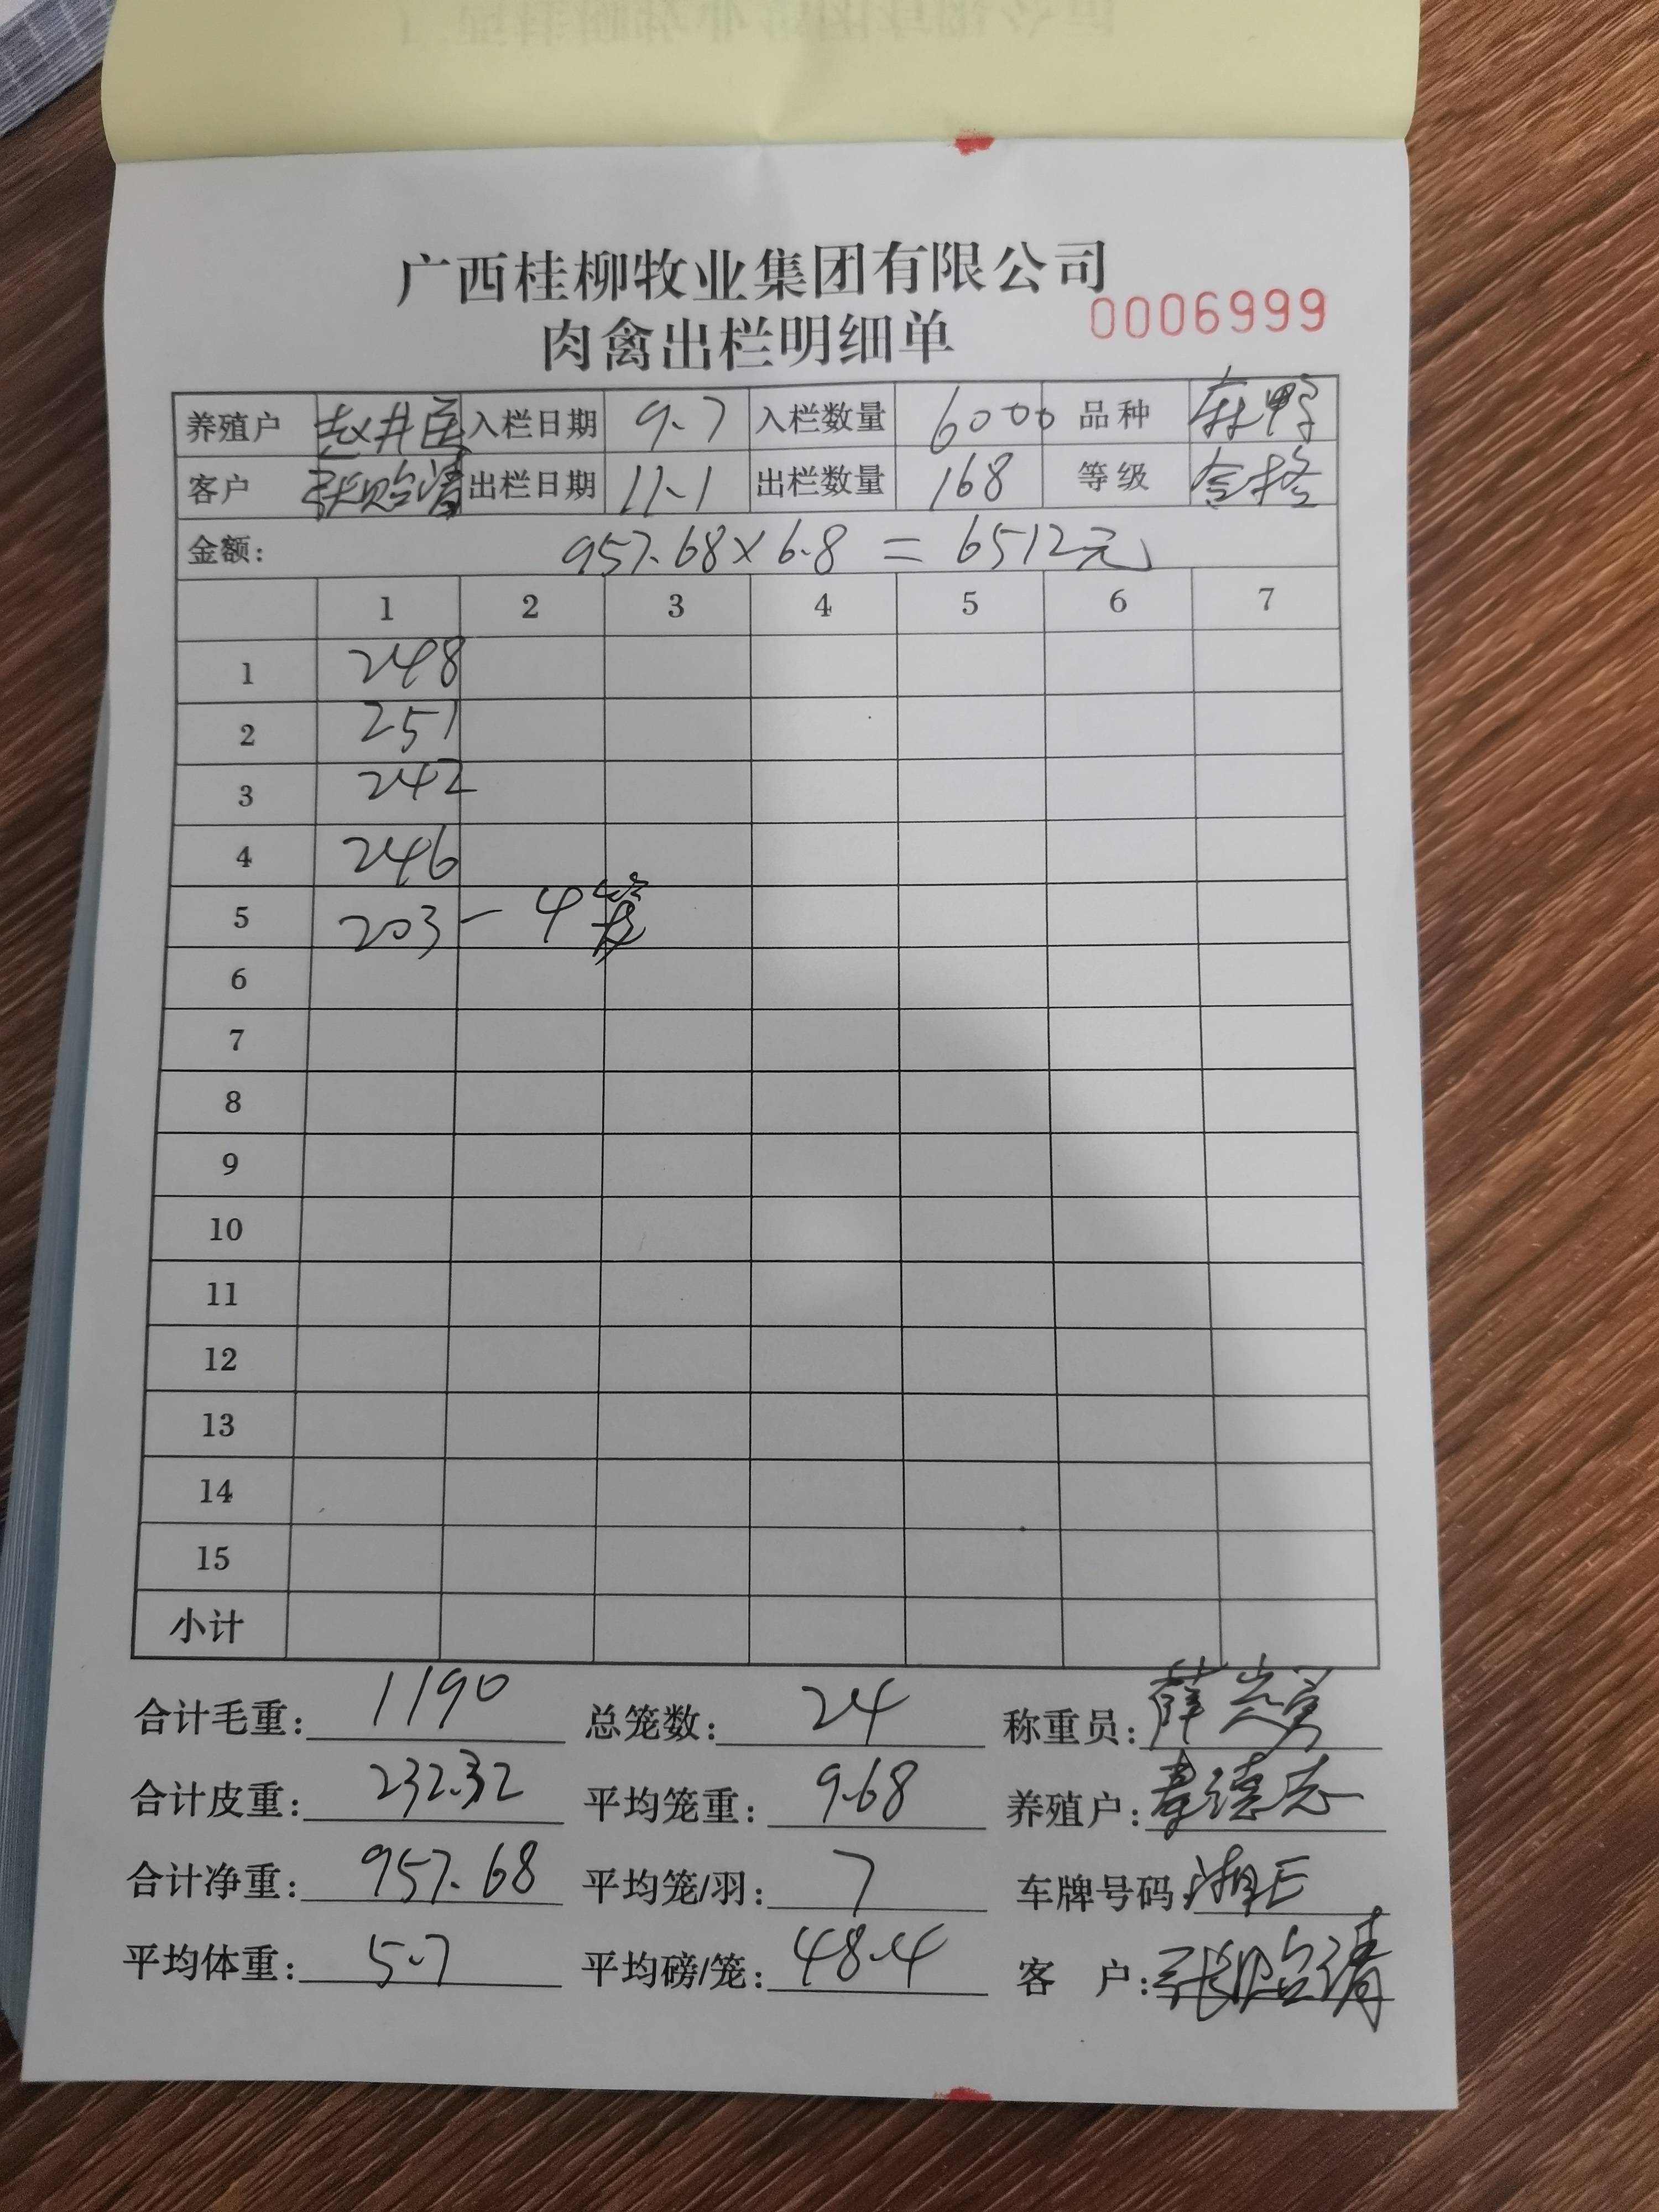 广西桂柳牧业集团有限公司
肉禽出栏明细单 0006999
养殖户 赵井医 入栏日期 9.7 入栏数量 6000 品种 麻鸭
客户 张贻清 出栏日期 11.1 出栏数量 168 等级 合格
金额: 957.68×6.8=6512元
1 2 3 4 5 6 7
1 248
2 251
3 242
4 246
5 203-4笼
6
7
8
9
10
11
12
13
14
15
小计
合计毛重: 1190 总笼数: 24 称重员: 薛
合计皮重: 232.32 平均笼重: 9.68 养殖户: 德志
合计净重: 957.68 平均笼/羽: 7 车牌号码: 湘E
平均体重: 5.7 平均磅/笼: 48.4 客 户: 张贻清